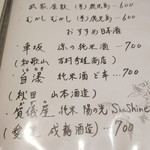 武家屋敷(芋)鹿児島 ‥‥600
むかしむかし(芋)鹿児島 ‥‥600
おすすめ日本酒
車坂 涼の純米酒 … 700
(和歌山 吉村秀雄商店)
白瀑 純米酒ど辛 … 700
(秋田 山本酒造)
賀儀屋 純米 陽の光 SunShine
(愛媛 成龍酒造) … 700